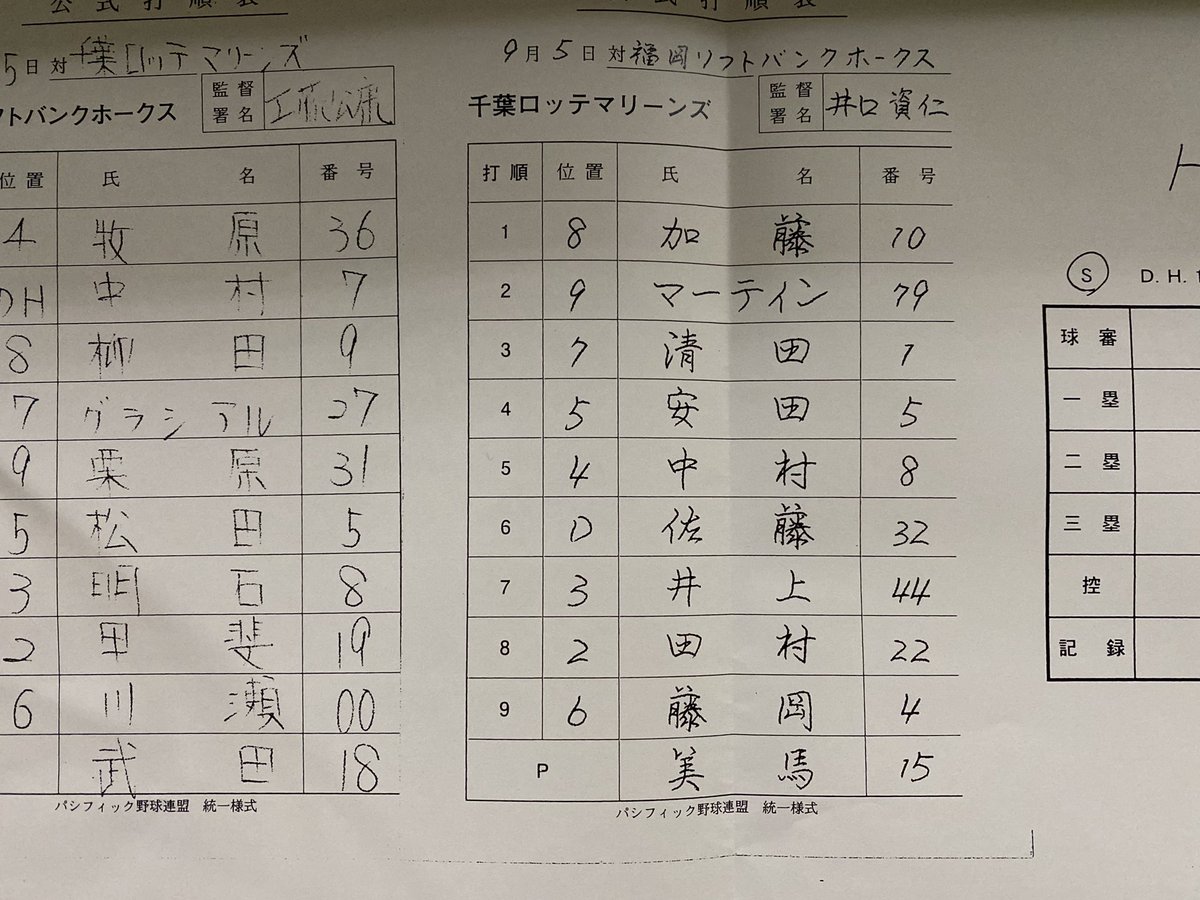 公式打順表
5日 対 千葉ロッテマリーンズ
フトバンクホークス 監督署名 工藤公康
位置 氏名 番号
4 牧原 36
DH 中村 7
8 柳田 9
7 グラシアル 27
9 栗原 31
5 松田 5
3 明石 8
2 甲斐 19
6 川瀬 00
武田 18
パシフィック野球連盟 統一様式
式打順表
9月5日 対 福岡ソフトバンクホークス
千葉ロッテマリーンズ 監督署名 井口資仁
打順 位置 氏名 番号
1 8 加藤 10
2 9 マーティン 79
3 7 清田 1
4 5 安田 5
5 4 中村 8
6 D 佐藤 32
7 3 井上 44
8 2 田村 22
9 6 藤岡 4
P 美馬 15
パシフィック野球連盟 統一様式
S D.H.
球審
一塁
二塁
三塁
控
記録